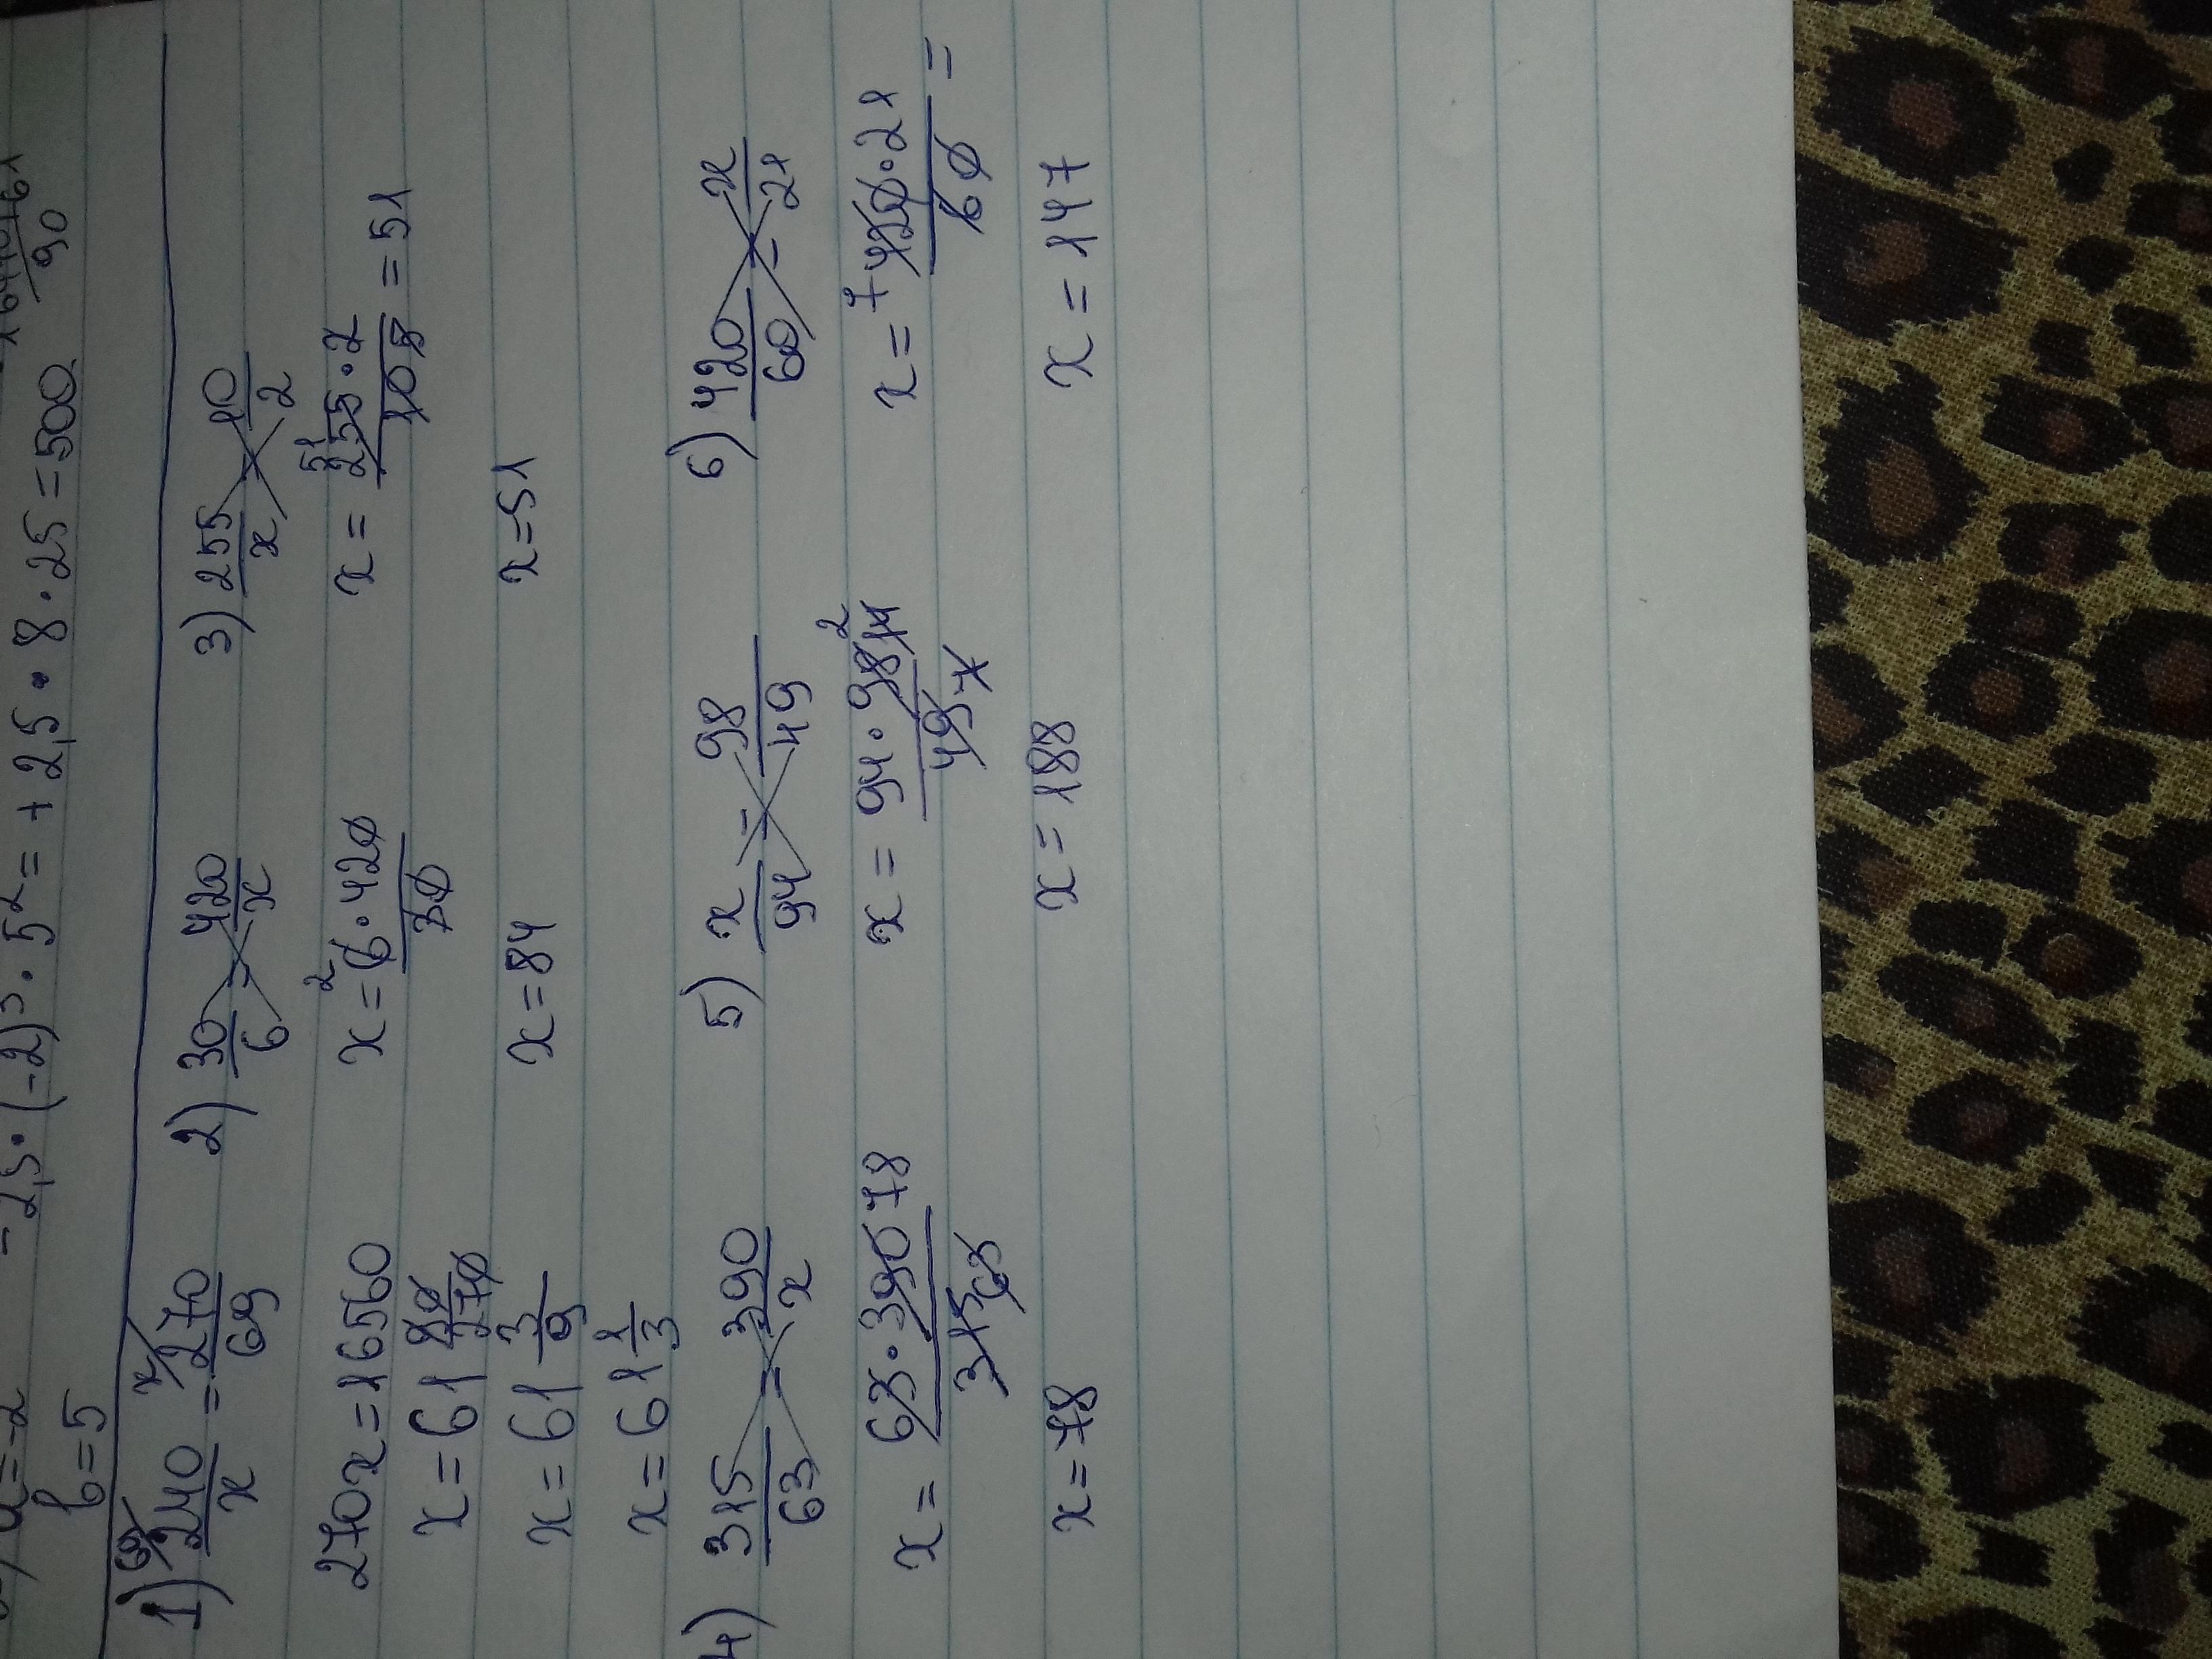 = -2,5 · (-2)³ · 5² = + 2,5 · 8 · 25 = 500
b=5
90
1) 240/x = 270/69
270x=16560
x=61 90/270
x=61 3/9
x=61 1/3
2) 30/6 = 420/x
x = 6·420/30
2
x=84
3) 255/x = 10/2
x = 255·2/10 = 51
51 5
x=51
4) 315/63 = 390/x
x = 63·390/315
78
x=78
5) x/94 = 98/49
x = 94·98/49
2 14 7
x=188
6) 420/60 = x/21
x = 420·21/60 =
7
x=147